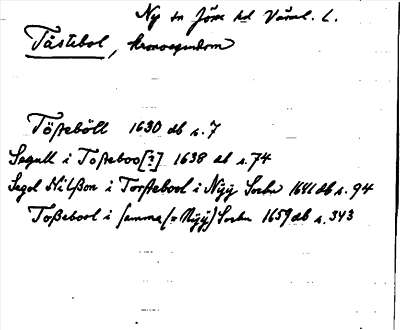 Ny sn Jösse hd Värml. l.
Tåstebol, kronoegendom
Tößeböll 1630 db s. 7
Segull i Toßteboo[?] 1638 db s. 74
Segol Nilßon i Torsteborl i Nyÿ Sochn 1641 db s. 94
Toßeborl i samma (= Nÿÿ) Sochn 1659 db s. 343